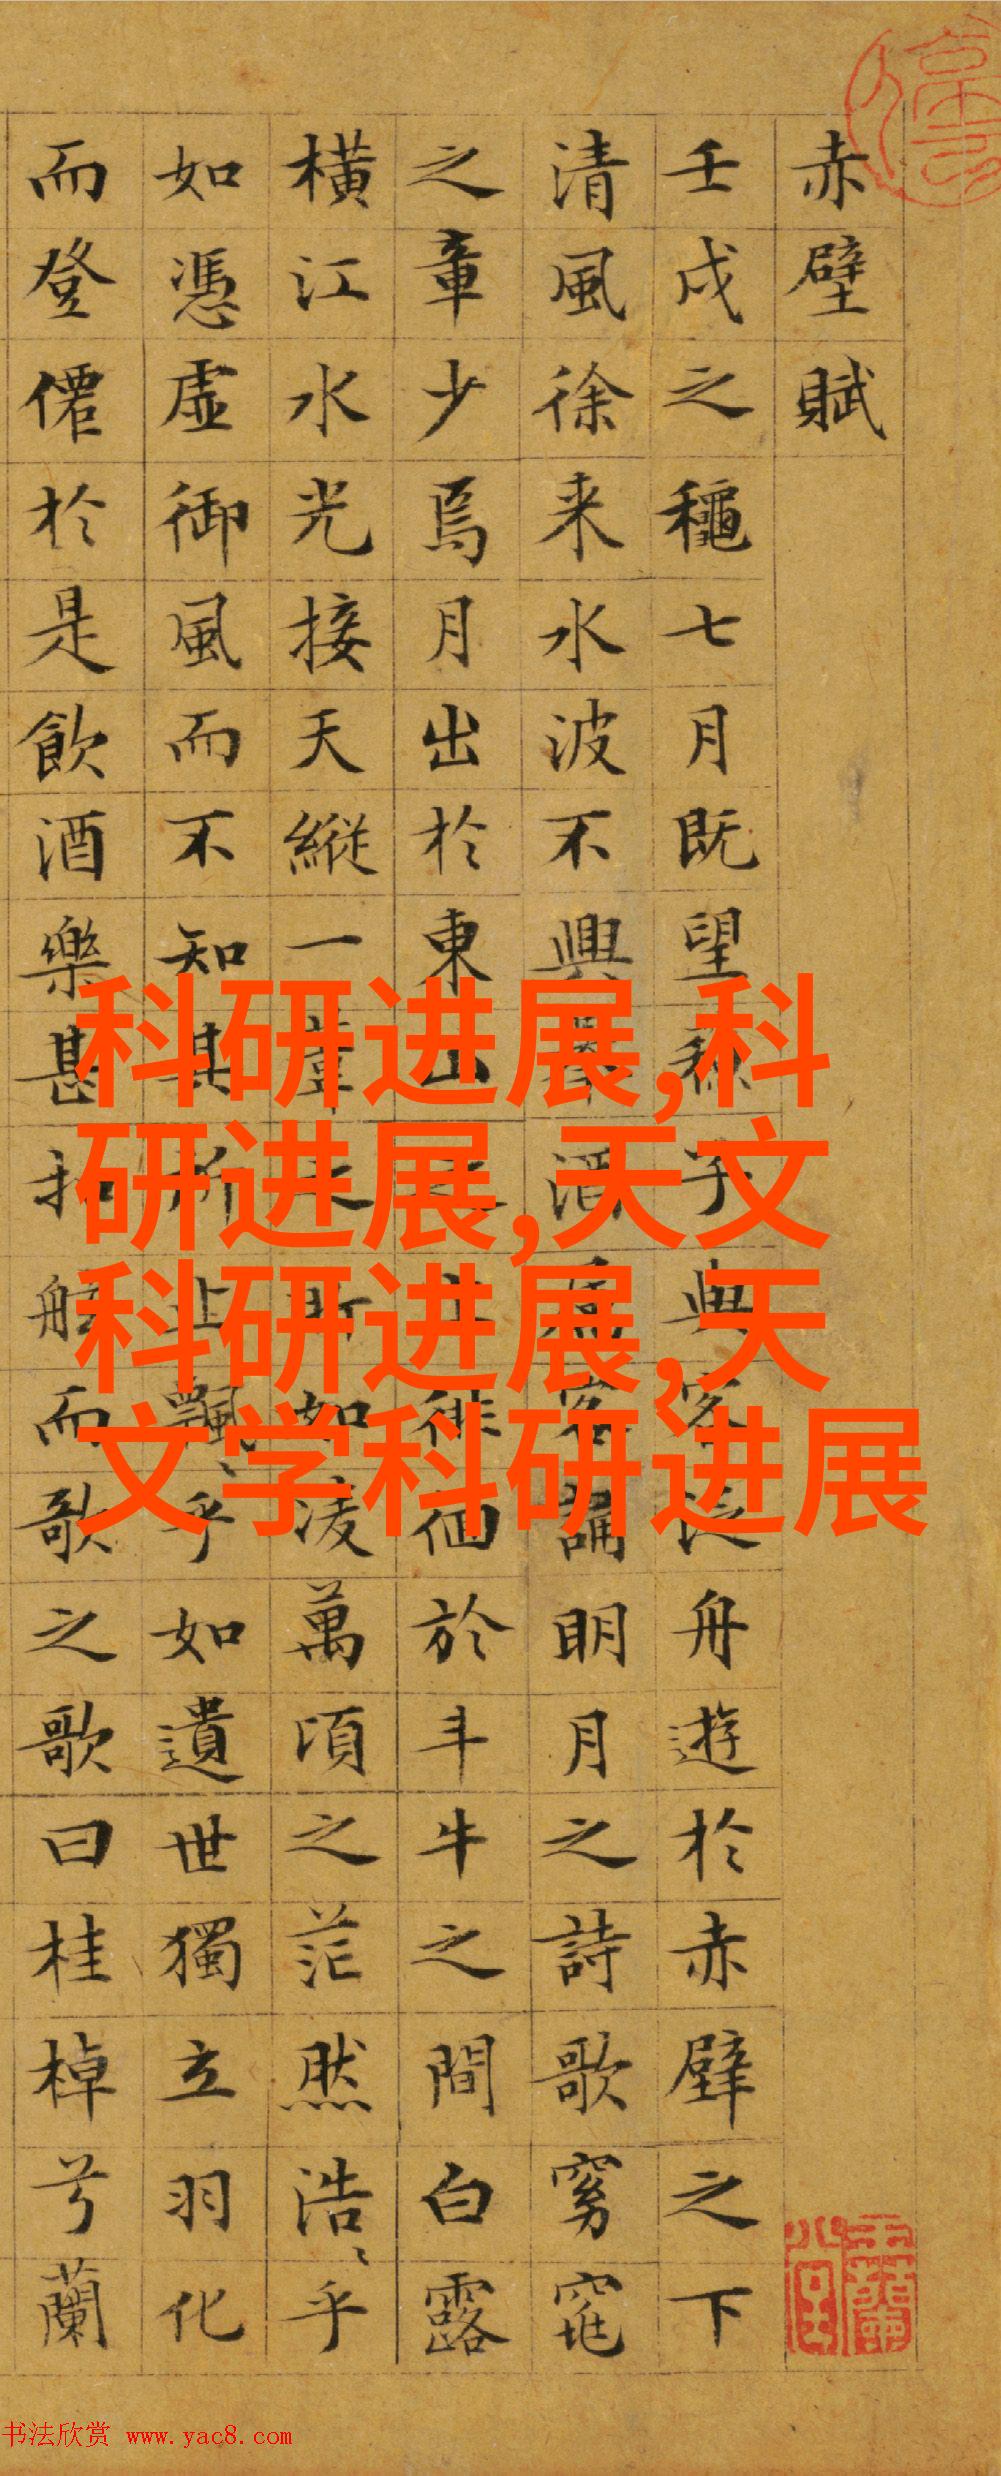 赤壁賦
壬戌之穐七月既望蘇子與客泛舟遊於赤壁之下
清風徐来水波不興舉酒屬客誦明月之詩歌窈窕
之章少焉月出於東山之上徘徊於斗牛之間白露
橫江水光接天縱一葦之所如凌萬頃之茫然浩、乎
如憑虛御風而不知其所止飄、乎如遺世獨立羽化
而登僊於是飲酒樂甚扣舷而歌之歌曰桂棹兮蘭
科研进展,科
研进展,天文
科研进展,天
文学科研进展
书法欣赏 www.yac8.com